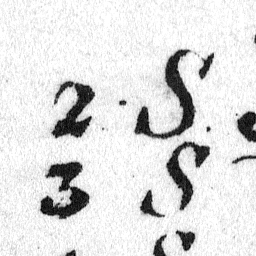 2 · S.
3 S